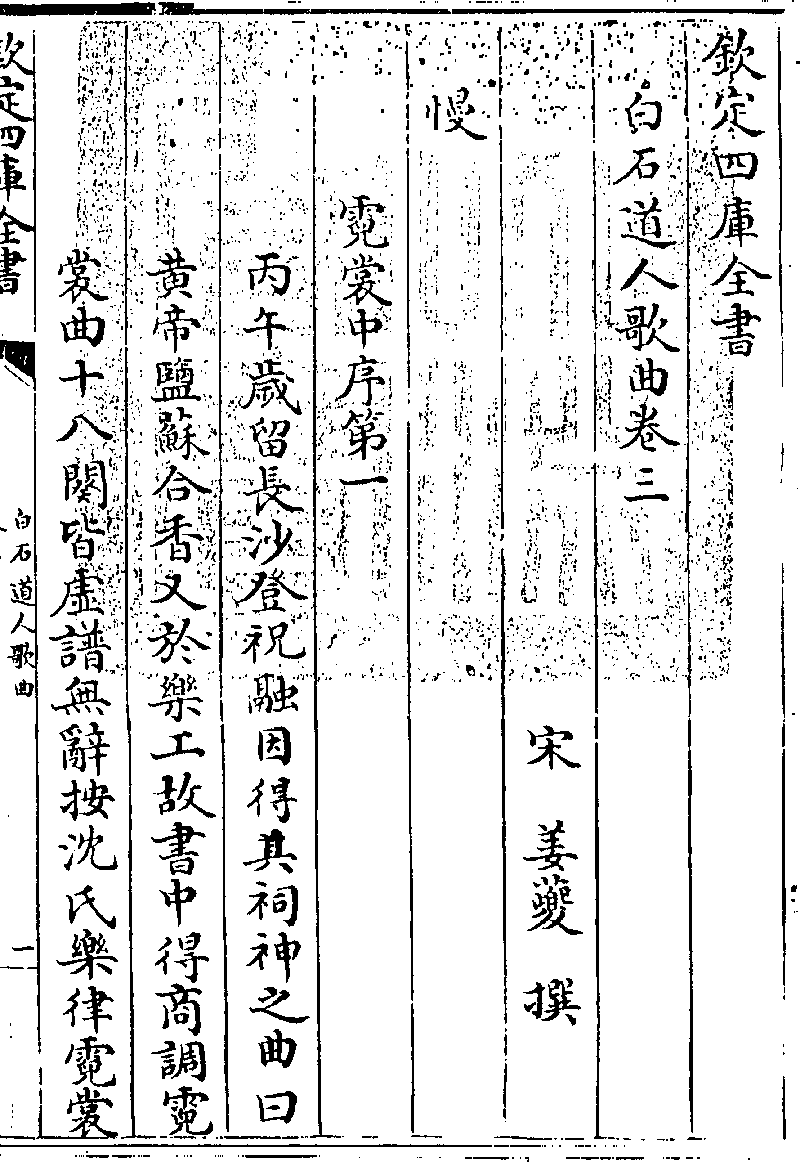 欽定四庫全書
白石道人歌曲卷三
宋 姜夔 撰
慢
霓裳中序第一
丙午歲留長沙登祝融因得其祠神之曲曰
黄帝鹽蘇合香又於樂工故書中得商調霓
裳曲十八闋皆虚譜無辭按沈氏樂律霓裳
欽定四庫全書
白石道人歌曲
一